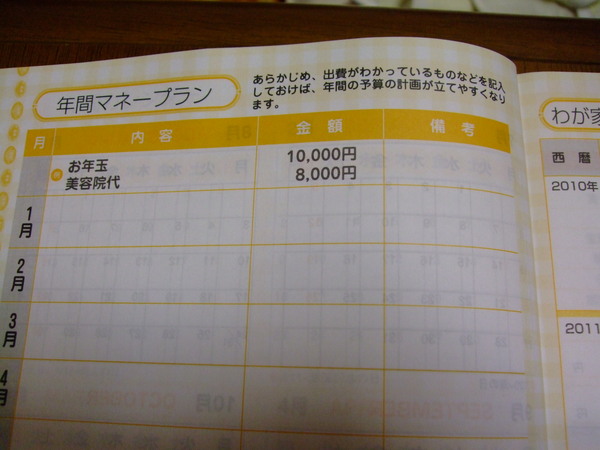 年間マネープラン
あらかじめ、出費がわかっているものなどを記入
しておけば、年間の予算の計画が立てやすくなり
ます。
月 内容 金額 備考
例 お年玉 10,000円
美容院代 8,000円
1月
2月
3月
4月
わが家
西暦
2010年
2011